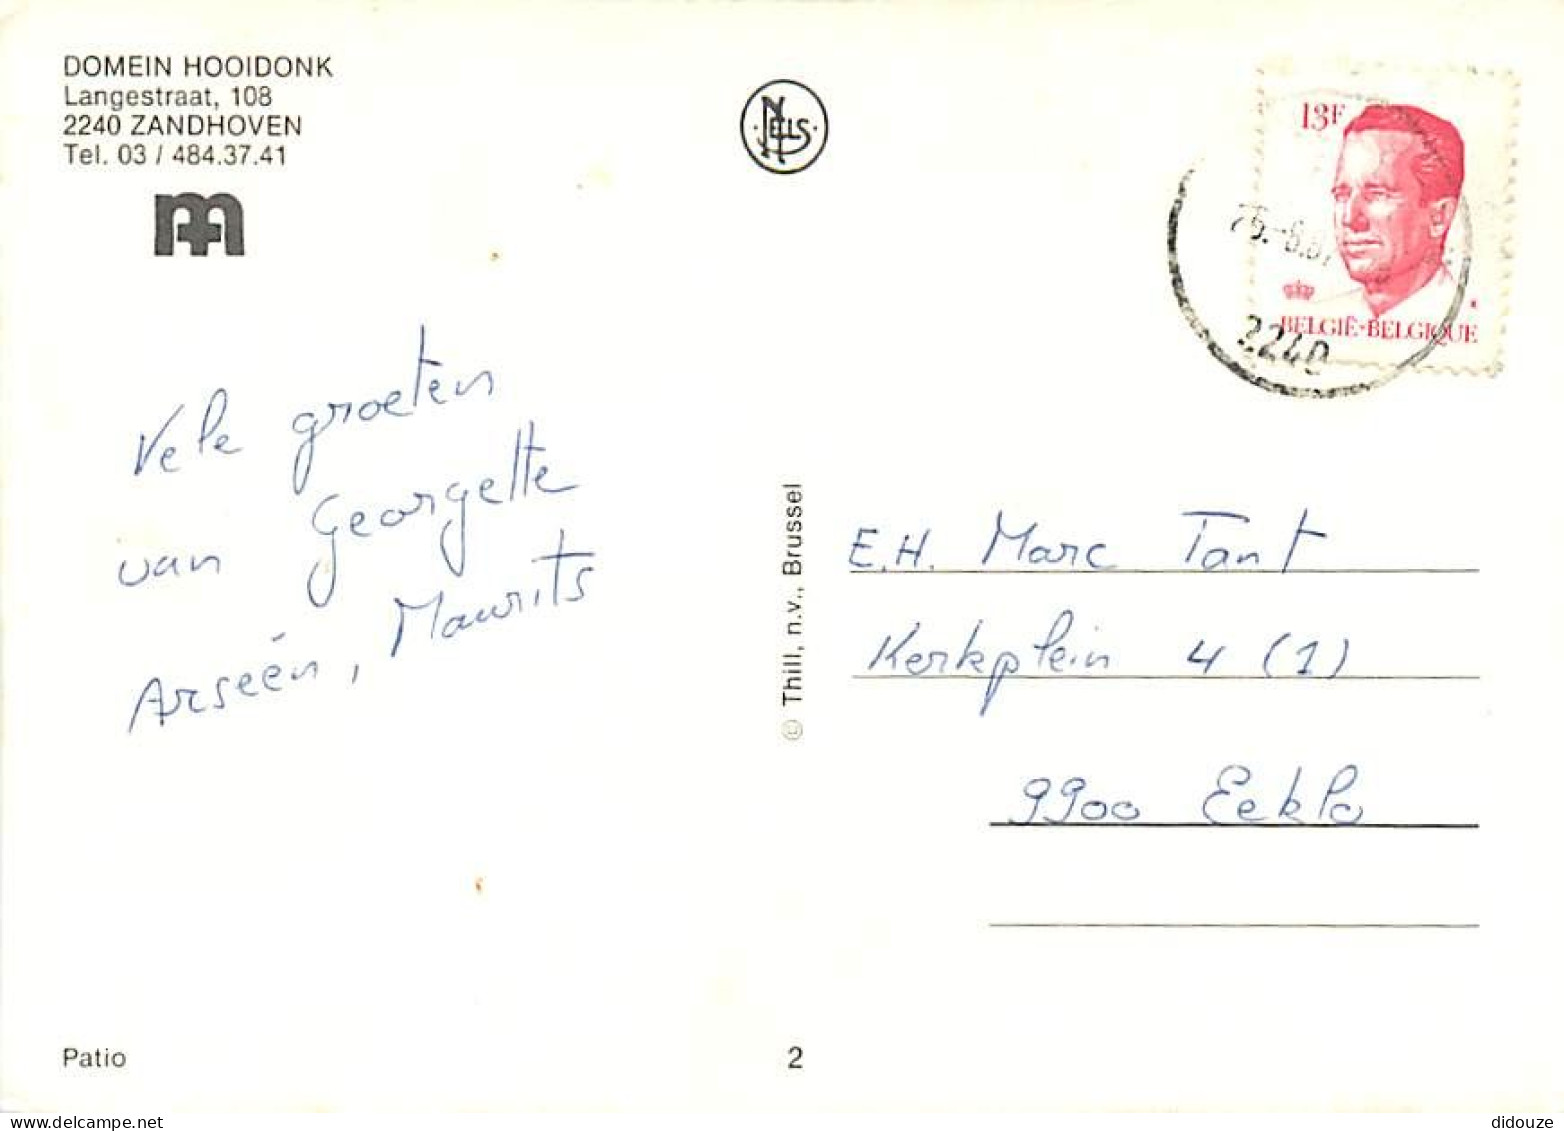 DOMEIN HOOIDONK
Langestraat, 108
2240 ZANDHOVEN
Tel. 03 / 484.37.41
NELS
13F
BELGIË-BELGIQUE
2240
Vele groeten
van Georgette
Arseen, Maurits
© Thill, n.v., Brussel
E.H. Marc Tant
Kerkplein 4 (1)
9900 Eeklo
Patio
2
delcampe.net
didouze